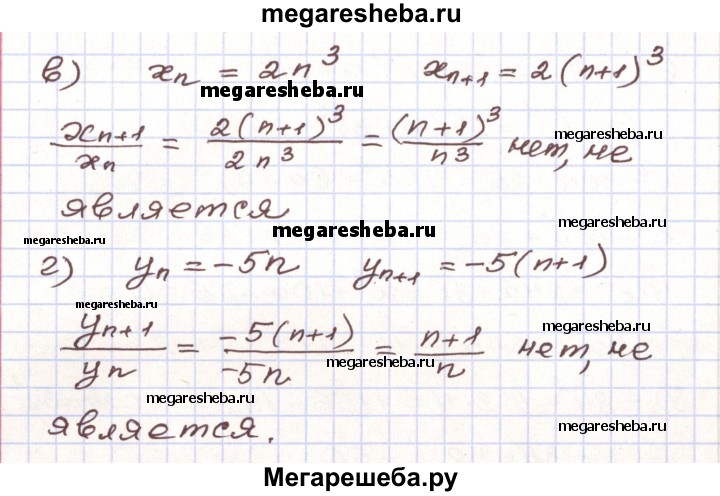 megaresheba.ru
в) xₙ = 2n³ xₙ₊₁ = 2(n+1)³
megaresheba.ru
xₙ₊₁/xₙ = 2(n+1)³/2n³ = (n+1)³/n³ нет, не
megaresheba.ru
megaresheba.ru
является
megaresheba.ru
megaresheba.ru
megaresheba.ru
г) yₙ = -5n yₙ₊₁ = -5(n+1)
megaresheba.ru
megaresheba.ru
yₙ₊₁/yₙ = -5(n+1)/-5n = n+1/n нет, не
megaresheba.ru
megaresheba.ru
megaresheba.ru
является.
Мегарешеба.ру